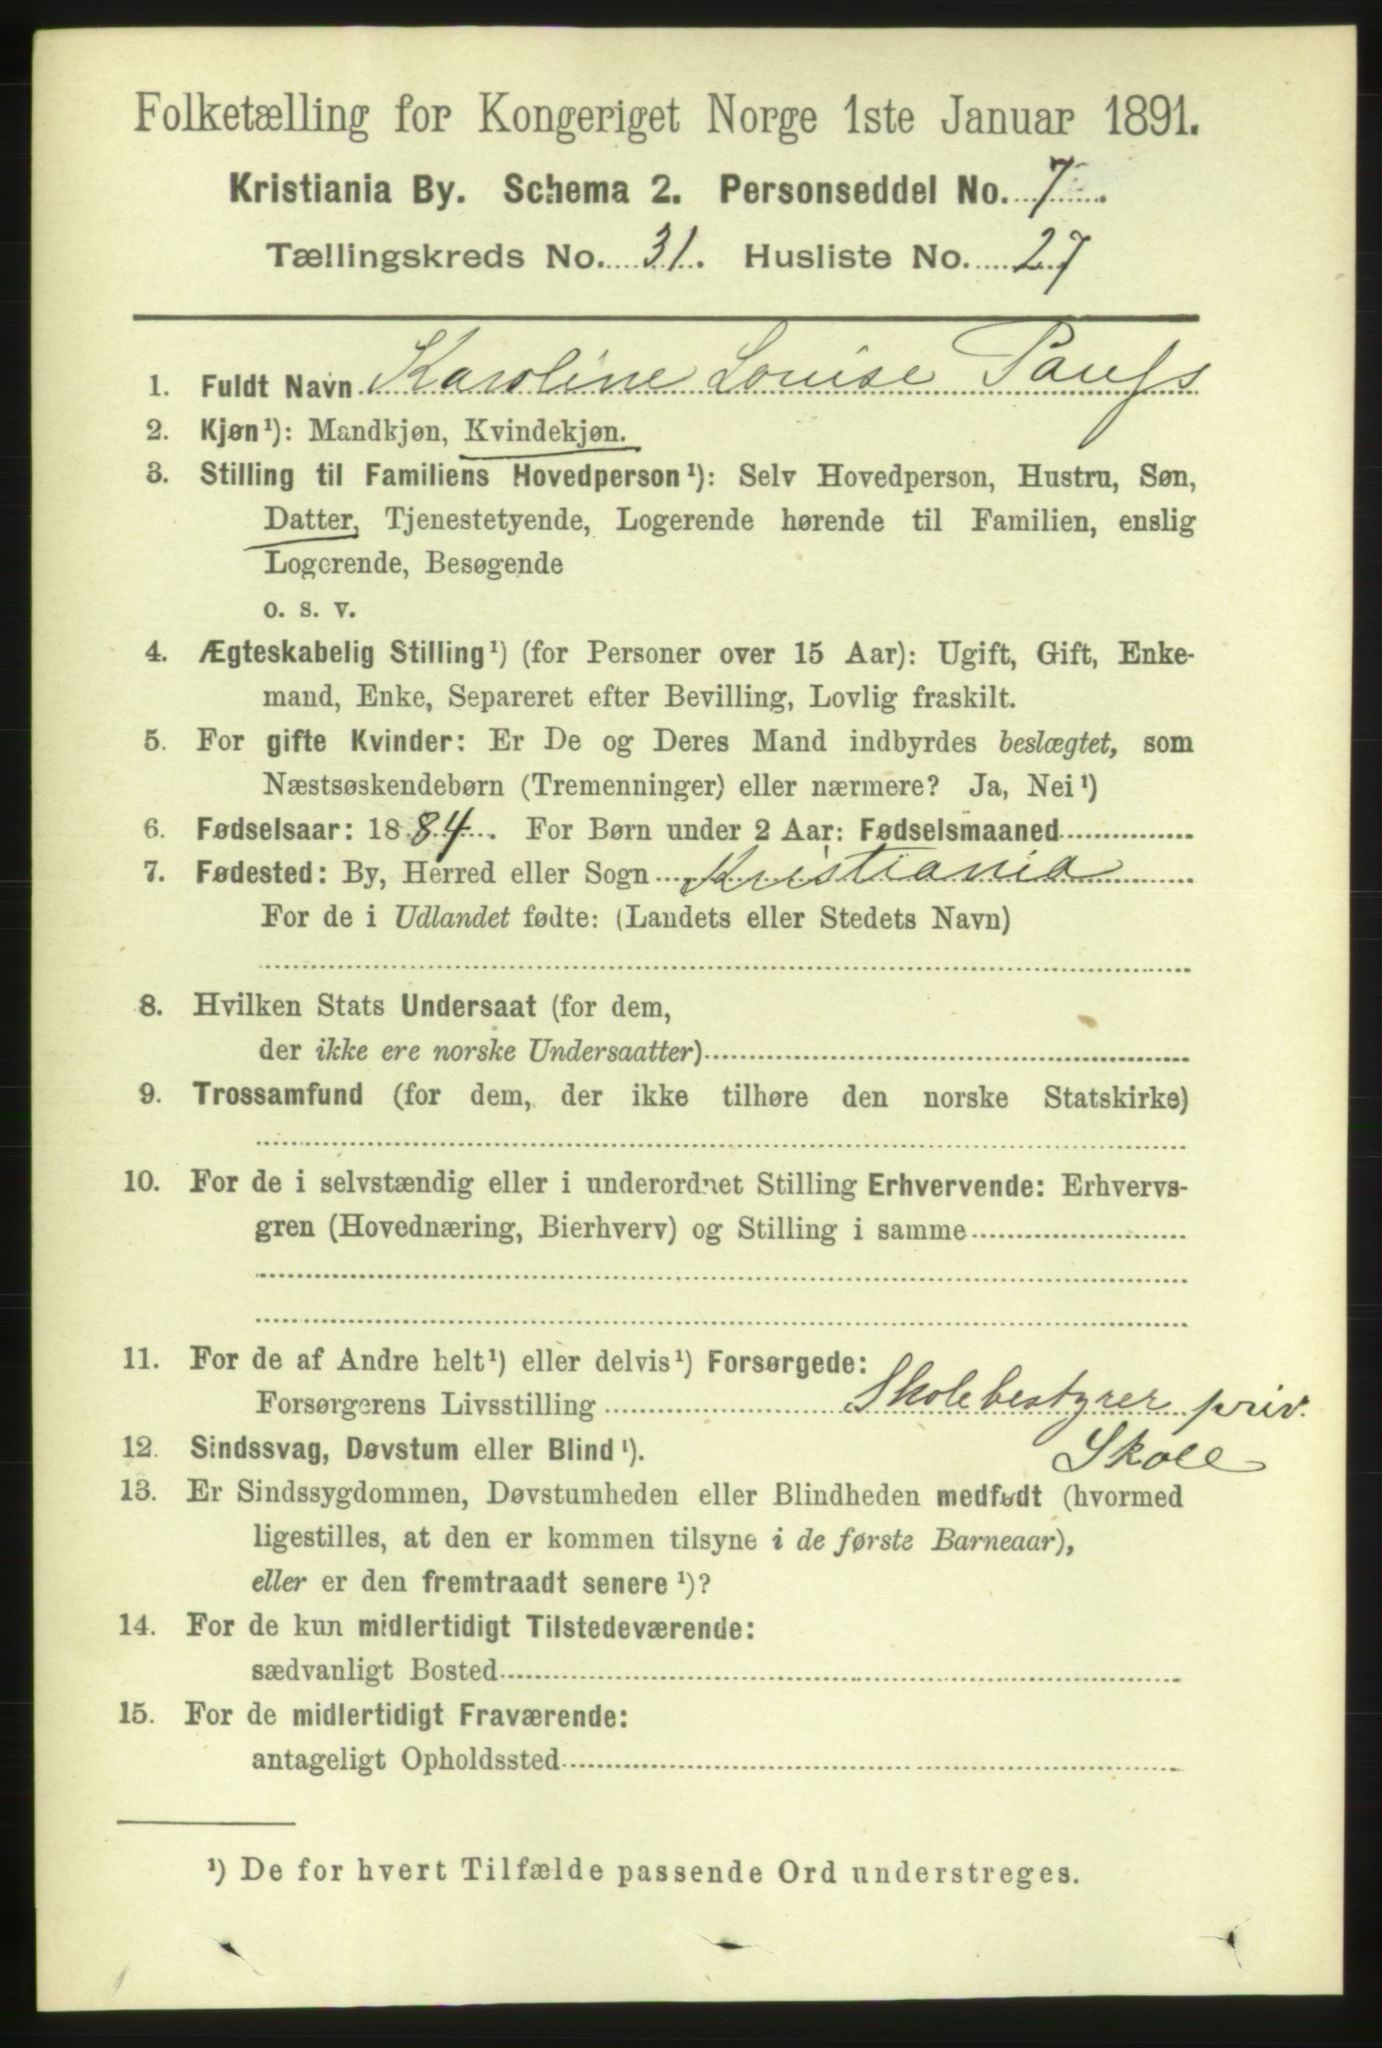 Folketælling for Kongeriget Norge 1ste Januar 1891.
Kristiania By. Schema 2. Personseddel No. 7.
Tællingskreds No. 31. Husliste No. 27
1. Fuldt Navn Karoline Louise Paufs
2. Kjøn¹): Mandkjøn, Kvindekjøn.
3. Stilling til Familiens Hovedperson¹): Selv Hovedperson, Hustru, Søn,
Datter, Tjenestetyende, Logerende hørende til Familien, enslig
Logerende, Besøgende
o. s. v.
4. Ægteskabelig Stilling¹) (for Personer over 15 Aar): Ugift, Gift, Enke-
mand, Enke, Separeret efter Bevilling, Lovlig fraskilt.
5. For gifte Kvinder: Er De og Deres Mand indbyrdes beslægtet, som
Næstsøskendebørn (Tremenninger) eller nærmere? Ja, Nei¹)
6. Fødselsaar: 1884. For Børn under 2 Aar: Fødselsmaaned
7. Fødested: By, Herred eller Sogn Kristiania
For de i Udlandet fødte: (Landets eller Stedets Navn)
8. Hvilken Stats Undersaat (for dem,
der ikke ere norske Undersaatter)
9. Trossamfund (for dem, der ikke tilhøre den norske Statskirke)
10. For de i selvstændig eller i underordnet Stilling Erhvervende: Erhvervs-
gren (Hovednæring, Bierhverv) og Stilling i samme
11. For de af Andre helt¹) eller delvis¹) Forsørgede:
Forsørgerens Livsstilling Skolebestyrer priv.
Skole
12. Sindssvag, Døvstum eller Blind¹).
13. Er Sindssygdommen, Døvstumheden eller Blindheden medfødt (hvormed
ligestilles, at den er kommen tilsyne i de første Barneaar),
eller er den fremtraadt senere¹)?
14. For de kun midlertidigt Tilstedeværende:
sædvanligt Bosted
15. For de midlertidigt Fraværende:
antageligt Opholdssted
¹) De for hvert Tilfælde passende Ord understreges.